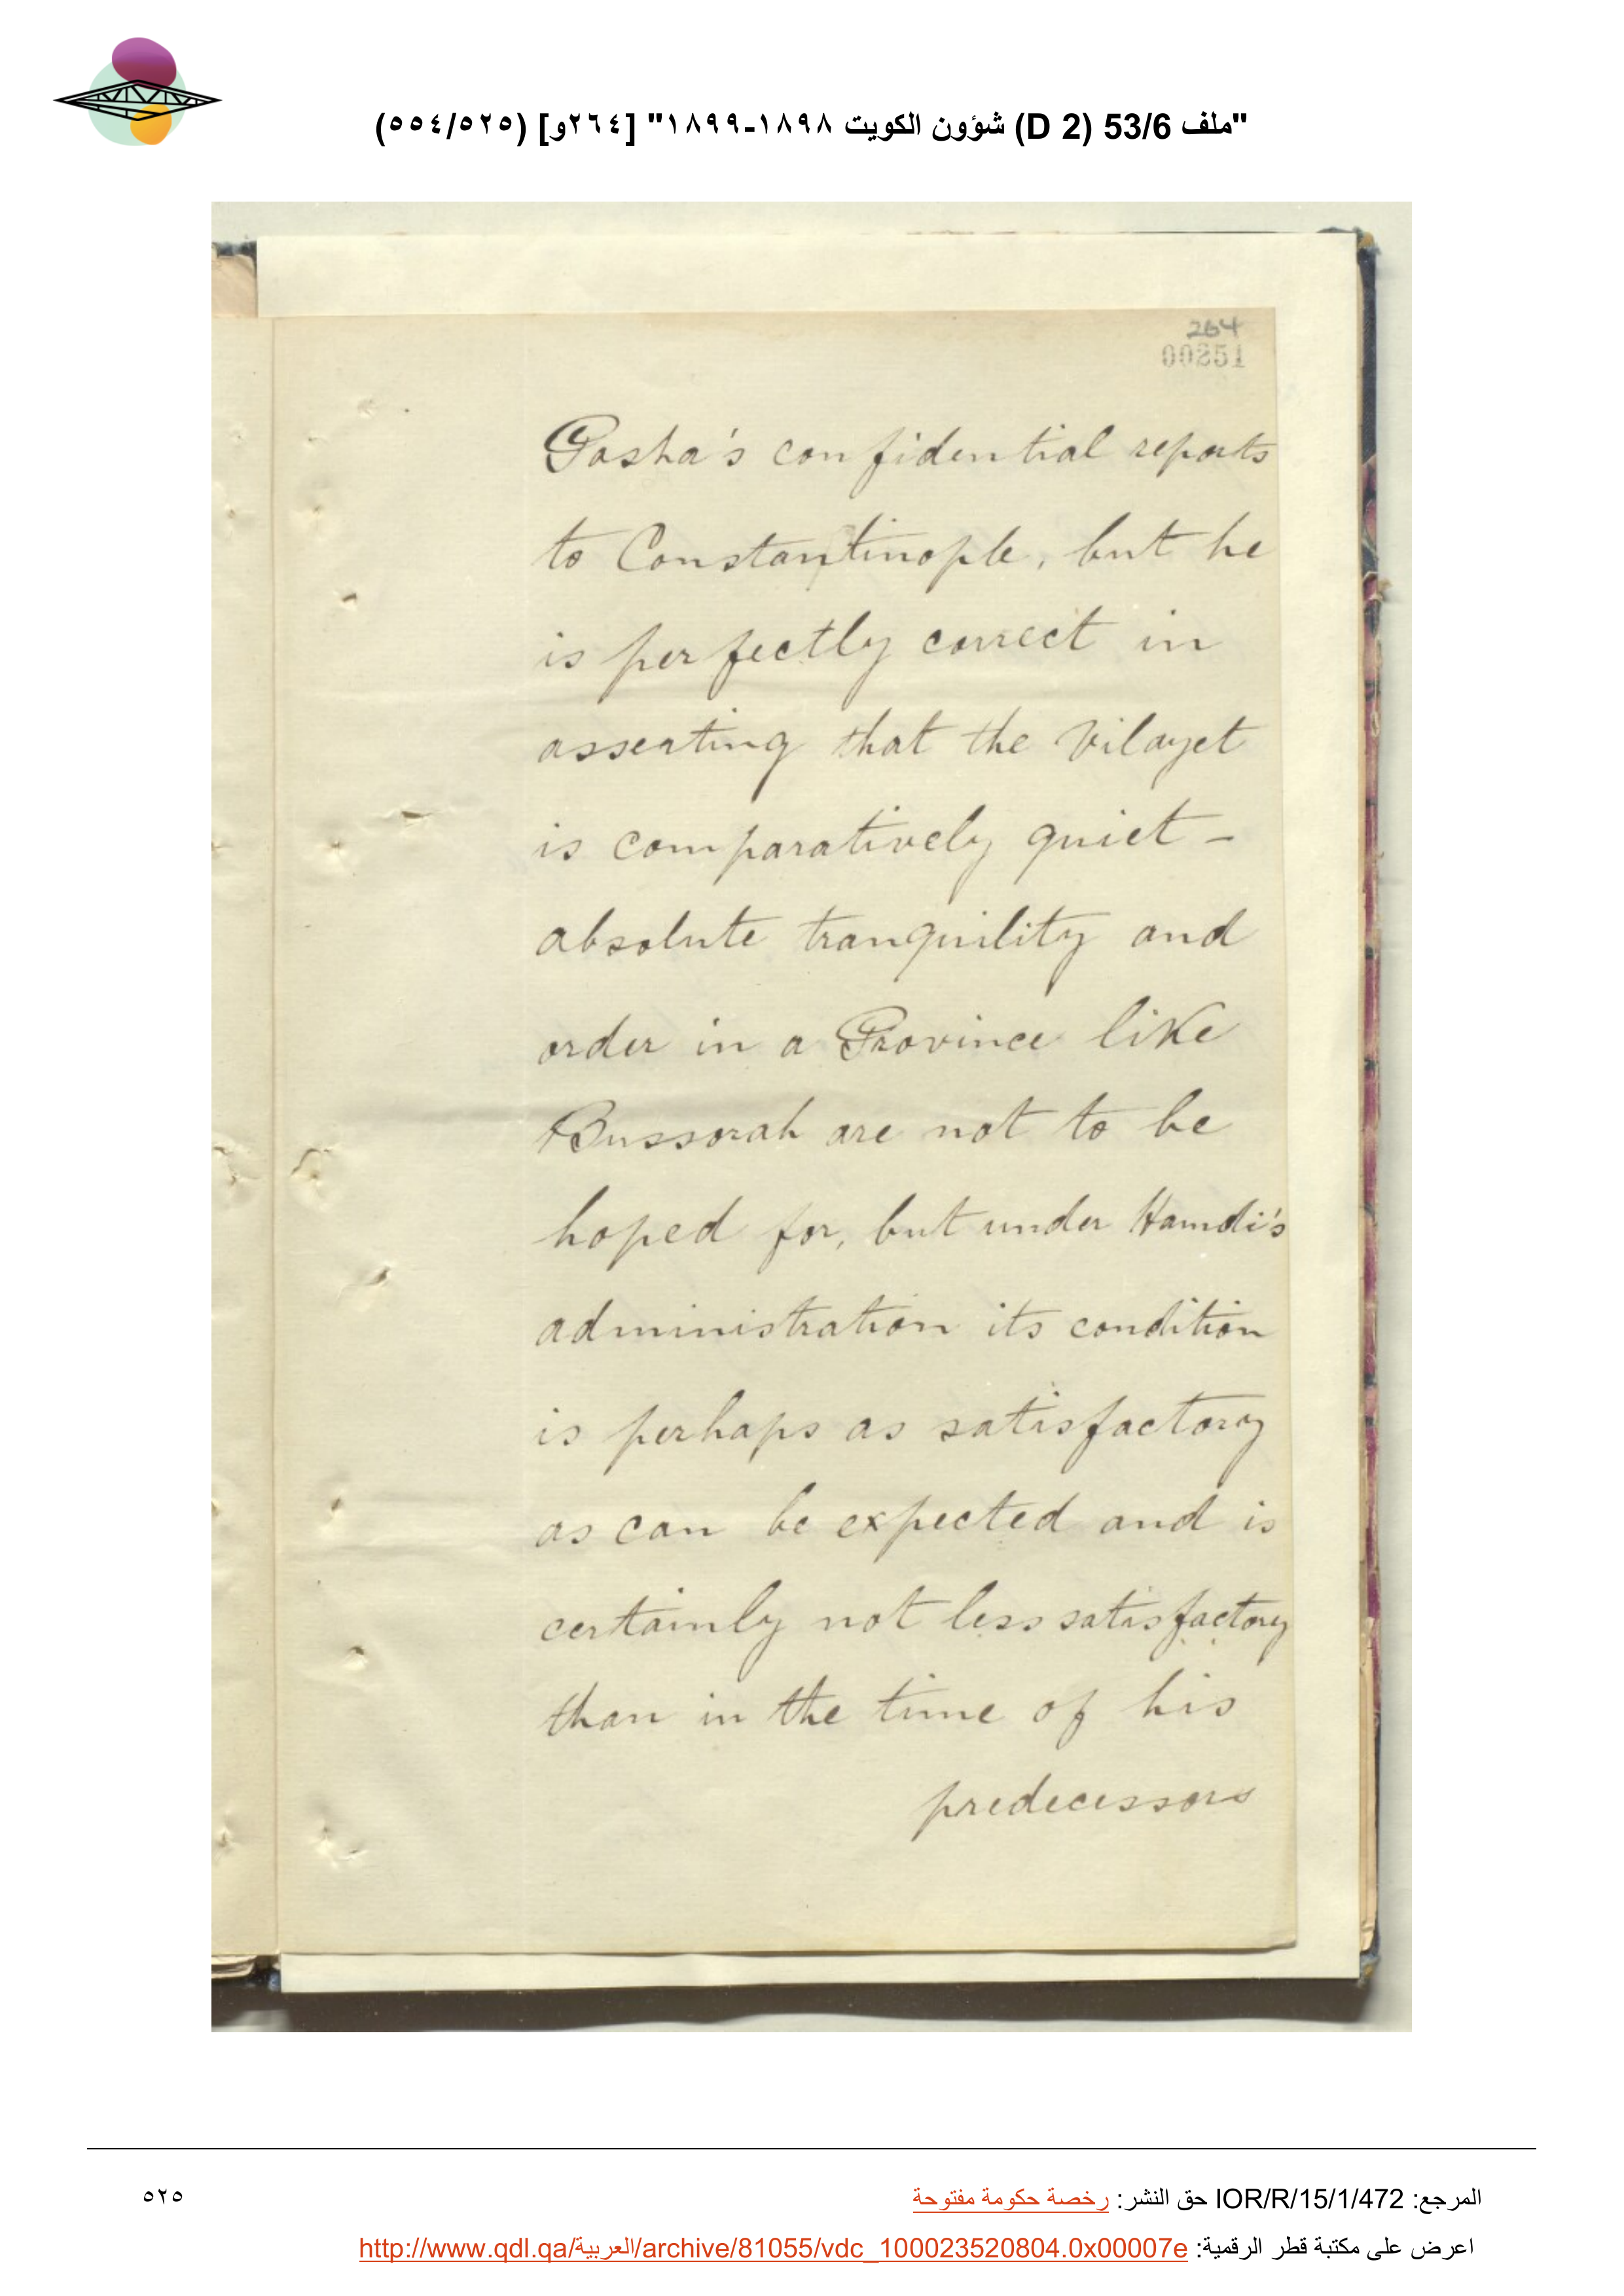 "ملف 53/6 (D 2) شؤون الكويت ١٨٩٨-١٨٩٩" [٢٦٤و] (٥٢٥/٥٥٤)
264
00251
Pasha's confidential reports
to Constantinople, but he
is perfectly correct in
asserting that the Vilayet
is comparatively quiet –
absolute tranquility and
order in a Province like
Bussorah are not to be
hoped for, but under Hamdi's
administration its condition
is perhaps as satisfactory
as can be expected and is
certainly not less satisfactory
than in the time of his
predecessors
المرجع: IOR/R/15/1/472 حق النشر: رخصة حكومة مفتوحة
٥٢٥
اعرض على مكتبة قطر الرقمية: http://www.qdl.qa/العربية/archive/81055/vdc_100023520804.0x00007e